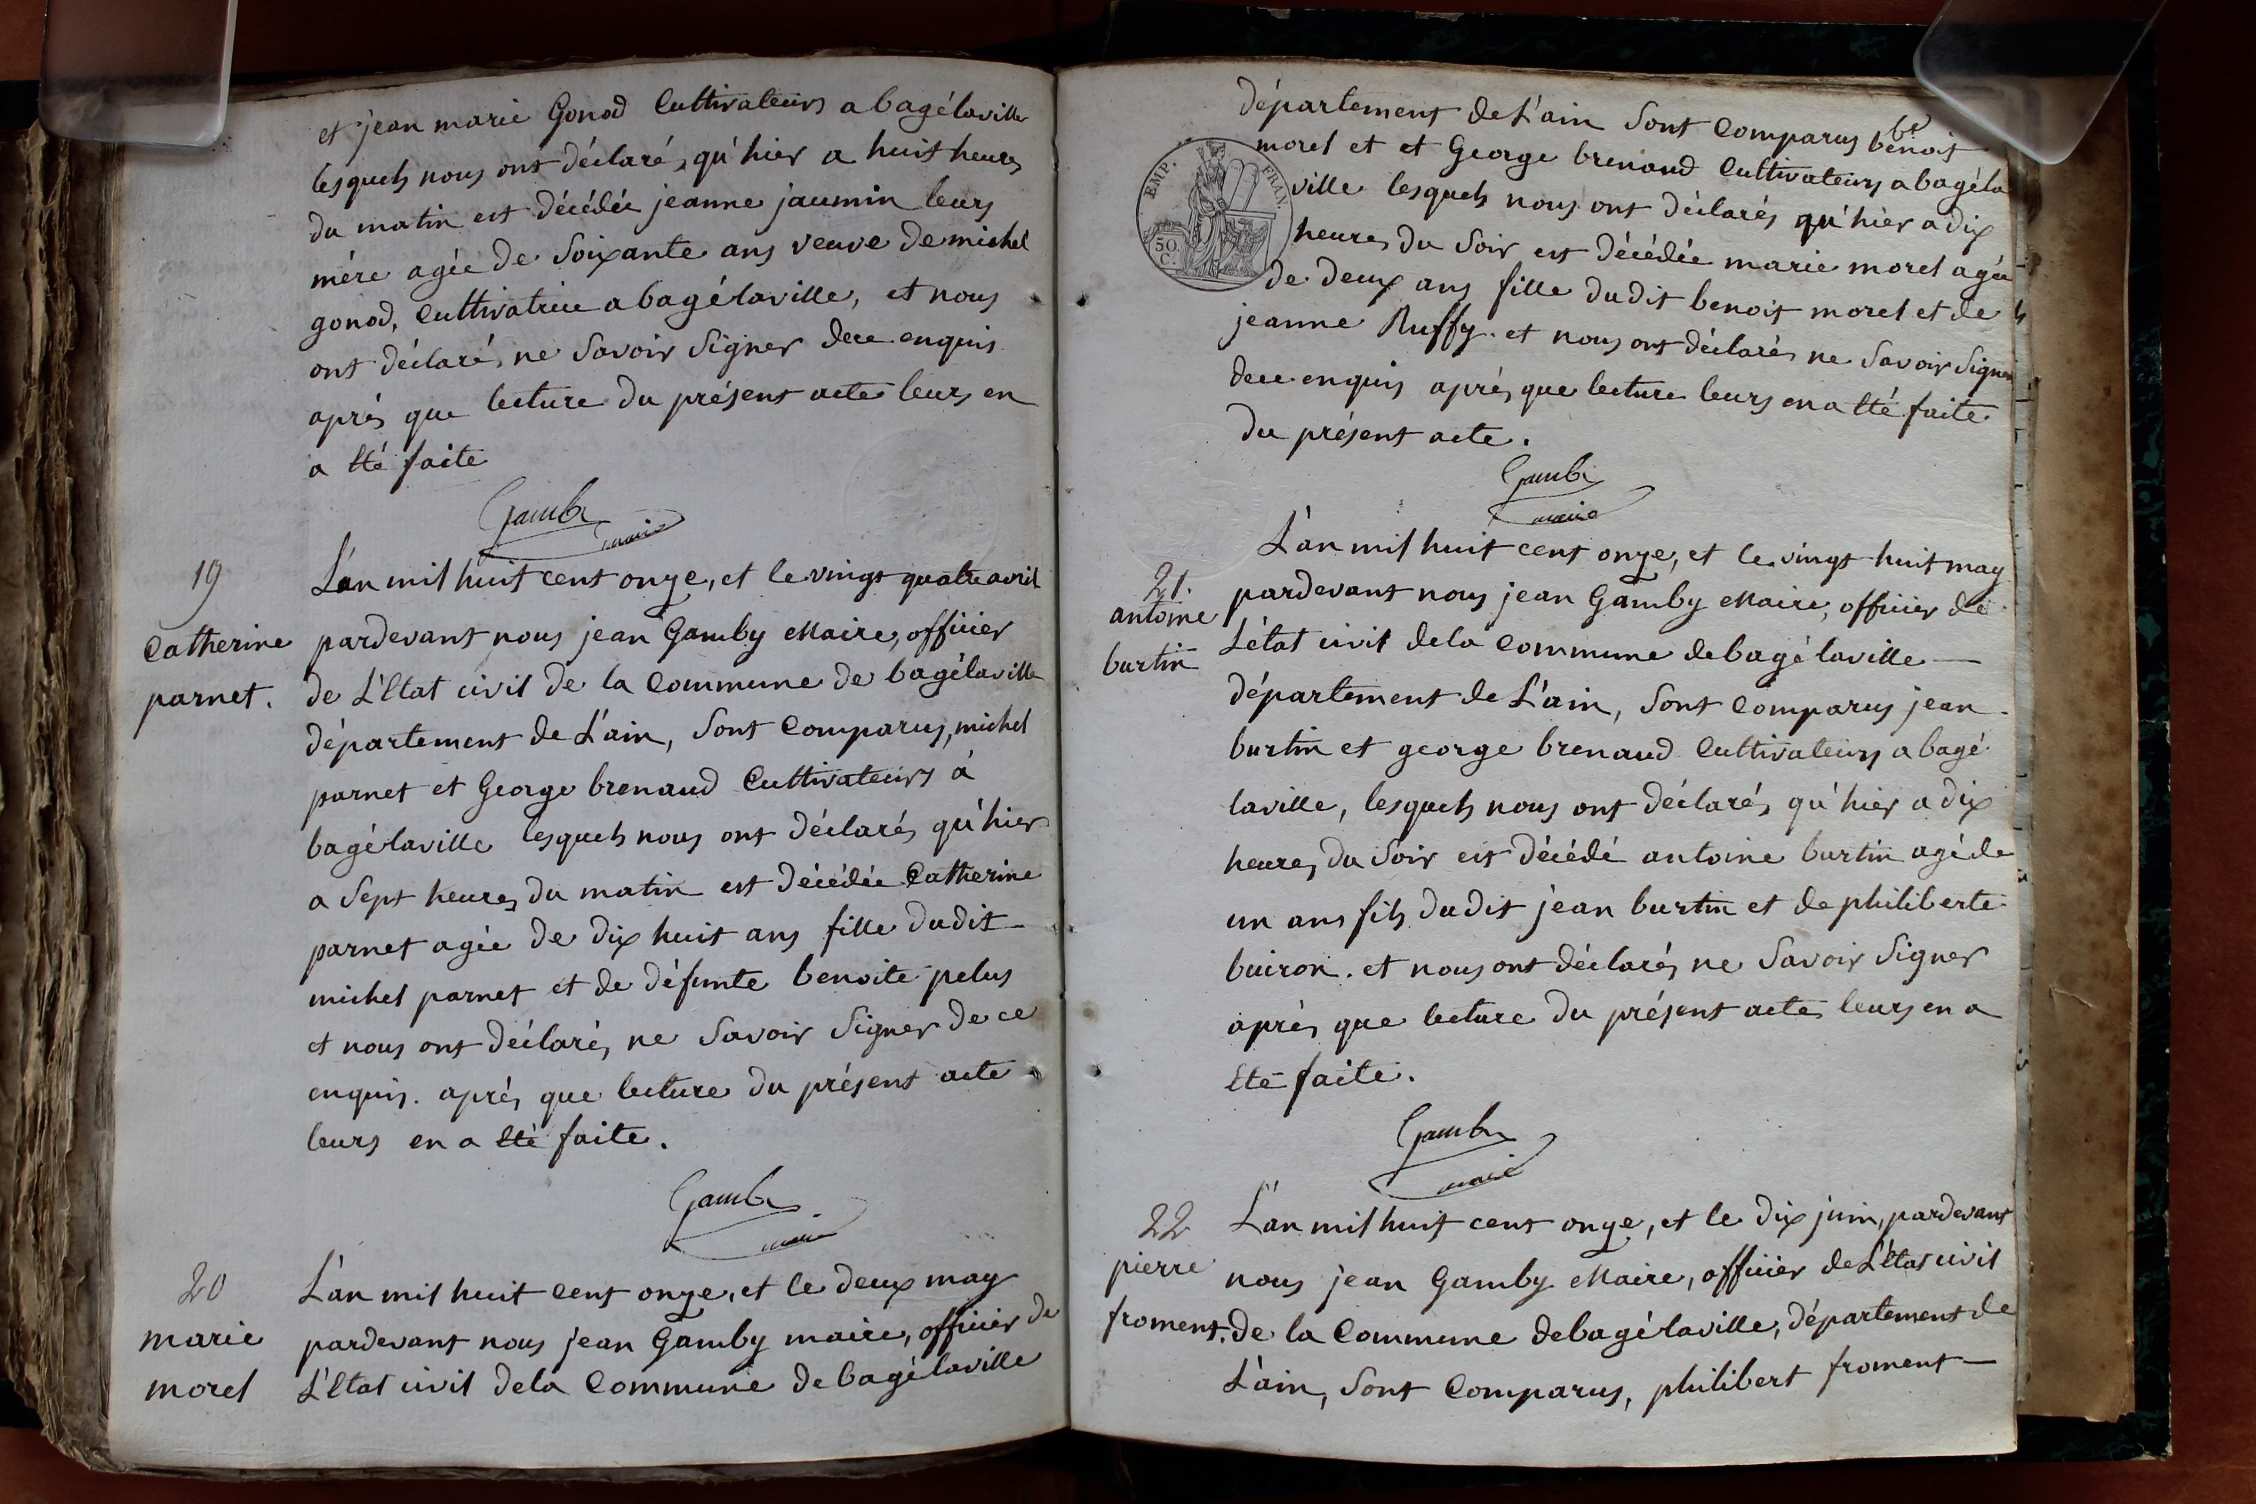 et jean marie Gonod Cultivateurs a bagélaville
lesquels nous ont déclarés, qu'hier a huit heures
du matin est décédée jeanne jaumin leurs
mére agée de Soixante ans veuve de michel
gonod, Cultivatrice a bagélaville, et nous
ont déclarés ne Savoir Signer dece enquis
aprés que lecture du présent acte leurs en
a Eté faite
Gamby
maire
19
Catherine
parnet.
L'an mil huit cent onze, et le vingt quatre avril
pardevant nous jean Gamby Maire, officier
de L'Etat civil de la Commune de bagélaville
département de L'ain, Sont Comparus, michel
parnet et George brenaud Cultivateurs á
bagélaville lesquels nous ont déclarés qu'hier
a Sept heures du matin est décédée Catherine
parnet agée de dix huit ans fille dudit
michel parnet et de défunte benoite pelus
et nous ont déclarés ne Savoir Signer de ce
enquis. aprés que lecture du présent acte
leurs en a Eté faite.
Gamby
maire
20
marie
morel
L'an mil huit cent onze, et le deux may
pardevant nous jean Gamby maire, officier de
L'Etat civil dela Commune de bagélaville
département de L'ain Sont Comparus benoit
morel et et George brenaud Cultivateurs a bagéla
ville lesquels nous ont déclarés qu'hier a dix
heures du Soir est décédée marie morel agée
de deux ans fille dudit benoit morel et de
jeanne Ruffy. et nous ont déclarés ne Savoir Signer
dece enquis aprés que lecture leurs en a Eté faite
du présent acte.
EMP. FRAN.
50.
C.
Gamby
maire
21.
antoine
burtin
L'an mil huit cent onze, et le vingt huit may
pardevant nous jean Gamby Maire, officier de
L'état civil dela Commune de bagélaville
département de L'ain, Sont Comparus jean
burtin et george brenaud Cultivateurs a bagé
laville, lesquels nous ont déclarés, qu'hier a dix
heures du Soir est décédé antoine burtin agé de
un ans fils dudit jean burtin et de philiberte
buiron. et nous ont déclarés ne Savoir Signer
aprés que lecture du présent acte leurs en a
Eté faite.
Gamby
maire
22
pierre
froment.
L'an mil huit cent onze, et le dix juin, pardevant
nous jean Gamby Maire, officier de L'état civil
de la Commune de bagélaville, département de
L'ain, Sont Comparus, philibert froment